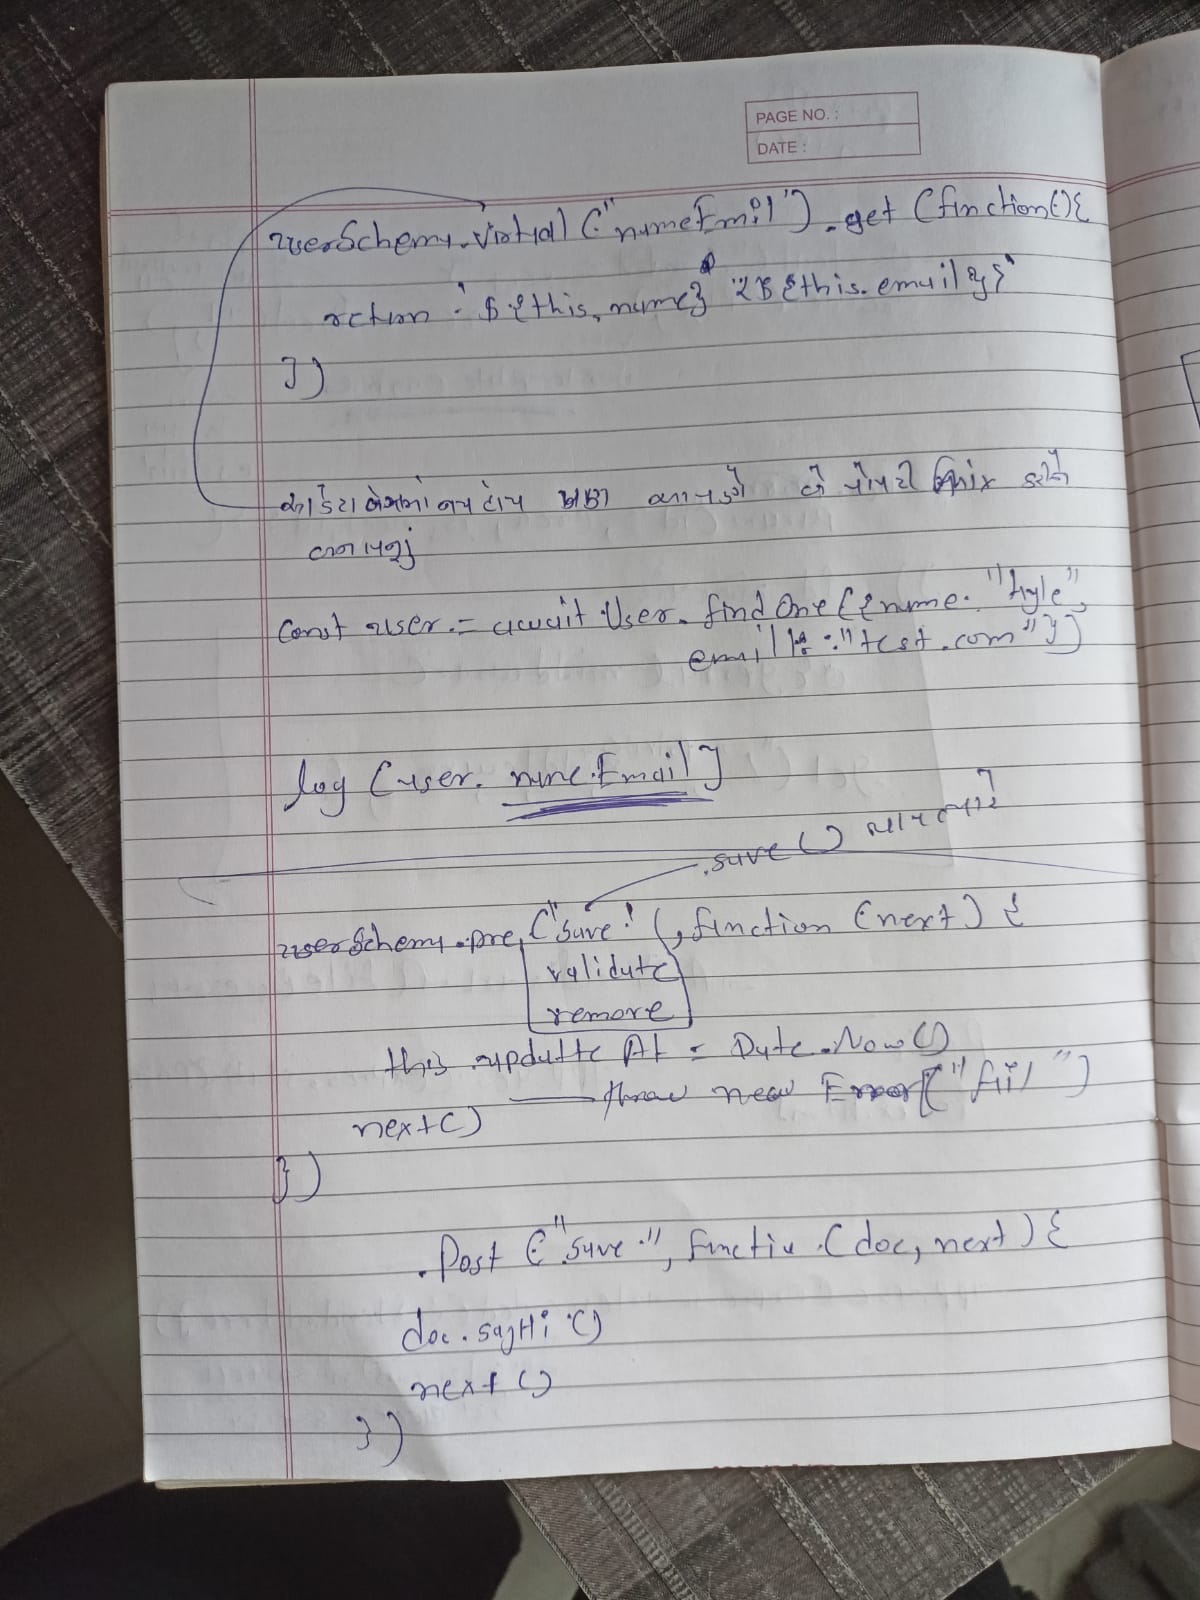 PAGE NO. :
DATE :
userSchema.virtual("nameEmail").get(function(){
return `${this.name} <${this.email}>`
})
ને
const user = await User.findOne({name: "kyle",
email: "test.com"})
log (user. nameEmail)
.save()
userSchema.pre("save", function (next) {
validate
remove
this.updatte At = Date.Now()
throw new Error("fail")
next()
})
.Post ("save", function (doc, next) {
doc.sayHi()
next()
})